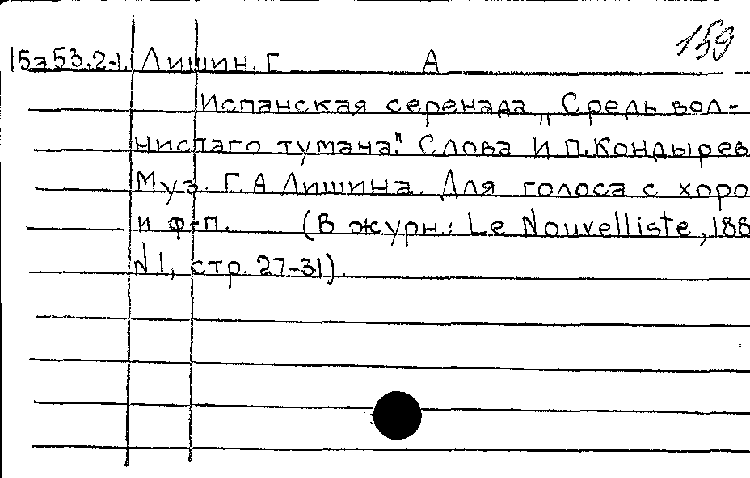 159
15а53.2-1. Лишин. Г А
Испанская серенада „Средь вол-
нистаго тумана." Слова И.П.Кондырев
Муз. Г.А Лишина. Для голоса с хоро
и ф-п. (В журн.: Le Nouvelliste, 188
N1, стр. 27-31).